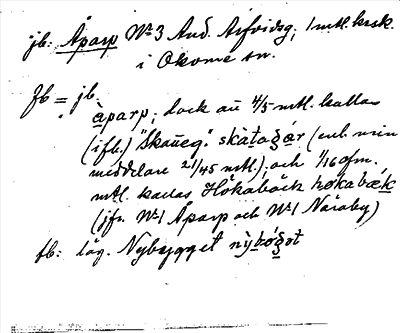 jb: Åparp No 3 And. Arfvidsg; 1 mtl. krsk.
i Okome sn.
fb = jb.
åparp; dock äu 4/5 mtl. kallas
(i fb.) "Skaueg." skàtagár (enl. min
meddelare 21/45 mtl.), och 1/16 ofm.
mtl. kallas Hökabäck høkabæk
(jfr No 1 Åparp och No 1 Näraby)
fb: läg. Nybygget nỳbógot